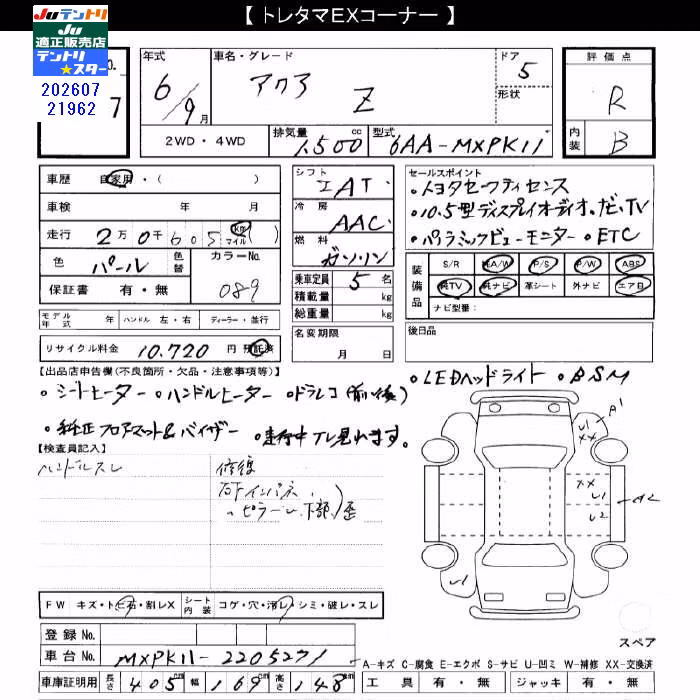 【 トレタマEXコーナー 】
Juテントリ
Ju
適正販売店
テントリ
★スター
202607
21962
No.
7
年式
6/9月
車名・グレード
アクア Z
ドア
5
形状
評価点
R
内装
B
2WD・4WD
排気量
1,500cc
型式
6AA-MXPK11
車歴 自家用・( )
車検 年 月
走行 2万0千605 km マイル
色 パール 色替 カラーNo.
089
保証書 有・無
モデル年式 年 ハンドル 左・右 ディーラー・並行
リサイクル料金 10.720 円 預託済
シフト
IAT.
冷房
AAC.
燃料
ガソリン
乗車定員 5 名
積載量 kg
総重量 kg
名変期限
月 日
セールスポイント
・トヨタセーフティセンス
・10.5型ディスプレイオーディオ.
TV
・パノラミックビューモニター ・ETC
装備品
S/R 純A/W P/S P/W ABS
純TV 純ナビ 革シート 外ナビ エアB
ナビ型番:
後日品
【出品店申告欄(不良箇所・欠品・注意事項等)】
・シートヒーター ・ハンドルヒーター ・ドラレコ(前後)
・LEDヘッドライト ・BSM
・純正フロアマット&バイザー ・走行中TV見れます。
【検査員記入】
ハンドルスレ
修復
右Fインパネ、
〃ピラー 下部 歪
A1
U1
XX
XX
U1
A2
U2
U1
FW キズ・トビ石・割レX シート内装 コゲ・穴・汚レ・シミ・破レ・スレ
登録No.
車台No. MXPK11-2205271
車庫証明用 長さ 405cm 幅 169cm 高さ 148cm
スペア
A-キズ C-腐食 E-エクボ S-サビ U-凹ミ W-補修 XX-交換済
工具 有・無 ジャッキ 有・無